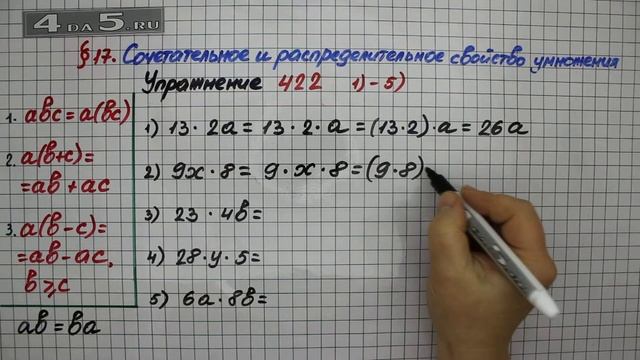 4DA5.RU
§17. Сочетательное и распределительное свойство умножения
Упражнение 422 1)-5)
1. abc = a(bc)
2. a(b+c)=
=ab+ac
3. a(b-c)=
=ab-ac,
b⩾c
ab=ba
1) 13·2a = 13·2·a = (13·2)·a = 26a
2) 9x·8 = 9·x·8 = (9·8)
3) 23·4b=
4) 28·y·5=
5) 6a·8b=